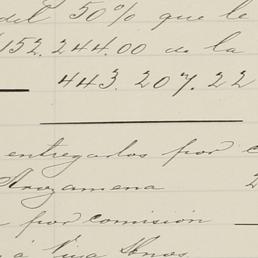 del 50% que le
152.244.00 de la
443.207.22
entregados por c
Arozamena 2
por comisión
á Viya Hnos